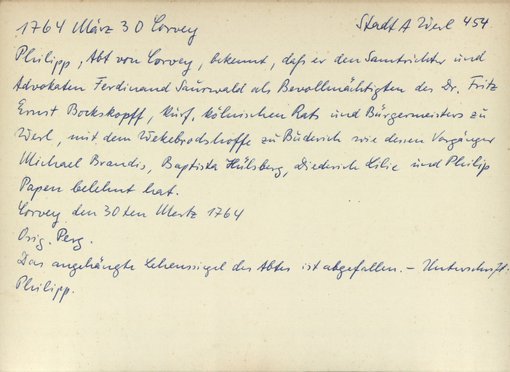 1764 März 30 Corvey Stadt A Werl 454.
Philipp, Abt von Corvey, bekennt, daß er den Samtrichter und
Advokaten Ferdinand Saurwald als Bevollmächtigten des Dr. Fritz
Ernst Bockskopff, Kurf. Kölnischen Rats und Bürgermeisters zu
Werl, mit dem Wekebrodshoffe zu Büderich wie dessen Vorgänger
Michael Brandis, Baptista Hülsberg, Diederich Lilie und Philip
Papen belehnt hat.
Corvey den 30ten Mertz 1764
Orig. Perg.
Das angehängte Lehenssiegel des Abtes ist abgefallen. – Unterschrift:
Philipp.